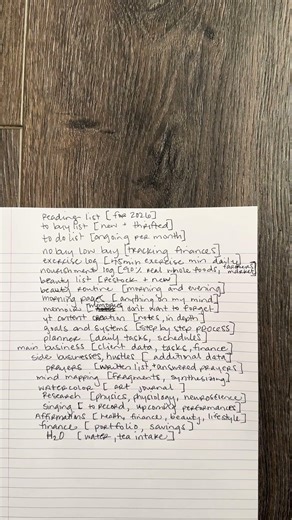 reading list [for 2026]
to buy list [new + thrifted]
to do list [ongoing per month]
no buy low buy [tracking finances]
exercise log [45 min exercise min daily]
nourishment log [90% real whole foods, farmers market]
beauty list [restock + new]
beauty routine [morning and evening]
morning pages [anything on my mind]
memoir [memories I don't want to forget]
yt content creation [notes, in depth]
goals and systems [step by step process]
planner [daily tasks, schedules]
main business [client data, tasks, finance]
side businesses, hustles [additional data]
prayers [written list, answered prayers]
mind mapping [fragments, synthesizing]
watercolor [art journal]
research [physics, physiology, neuroscience]
singing [to record, upcoming performances]
Affirmations [health, finance, beauty, lifestyle]
finance [portfolio, savings]
H2O [water, tea intake]